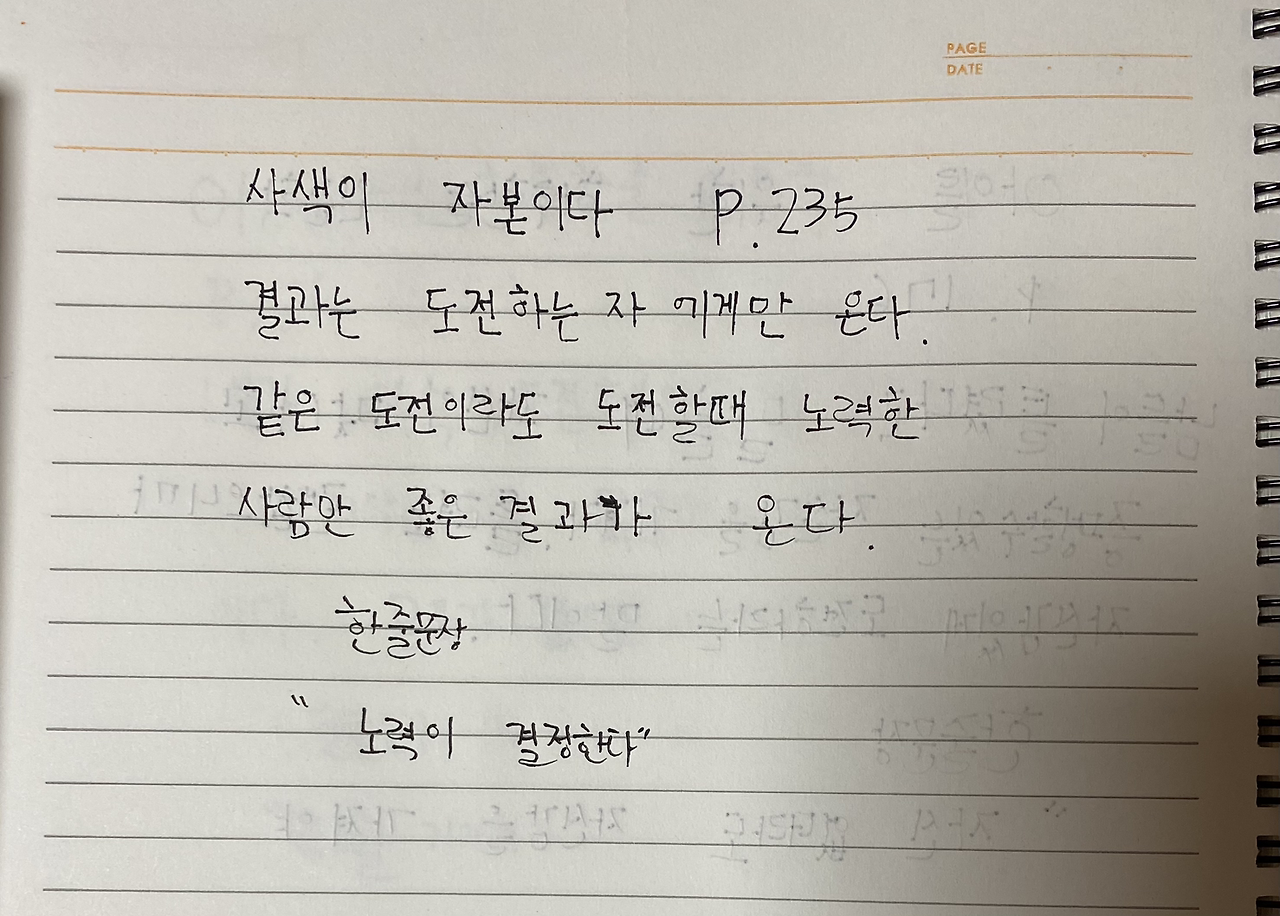 PAGE
DATE
사색이 자본이다 P.235
결과는 도전하는 자 에게만 온다.
같은 도전이라도 도전할때 노력한
사람만 좋은 결과가 온다.
한줄문장
" 노력이 결정한다"